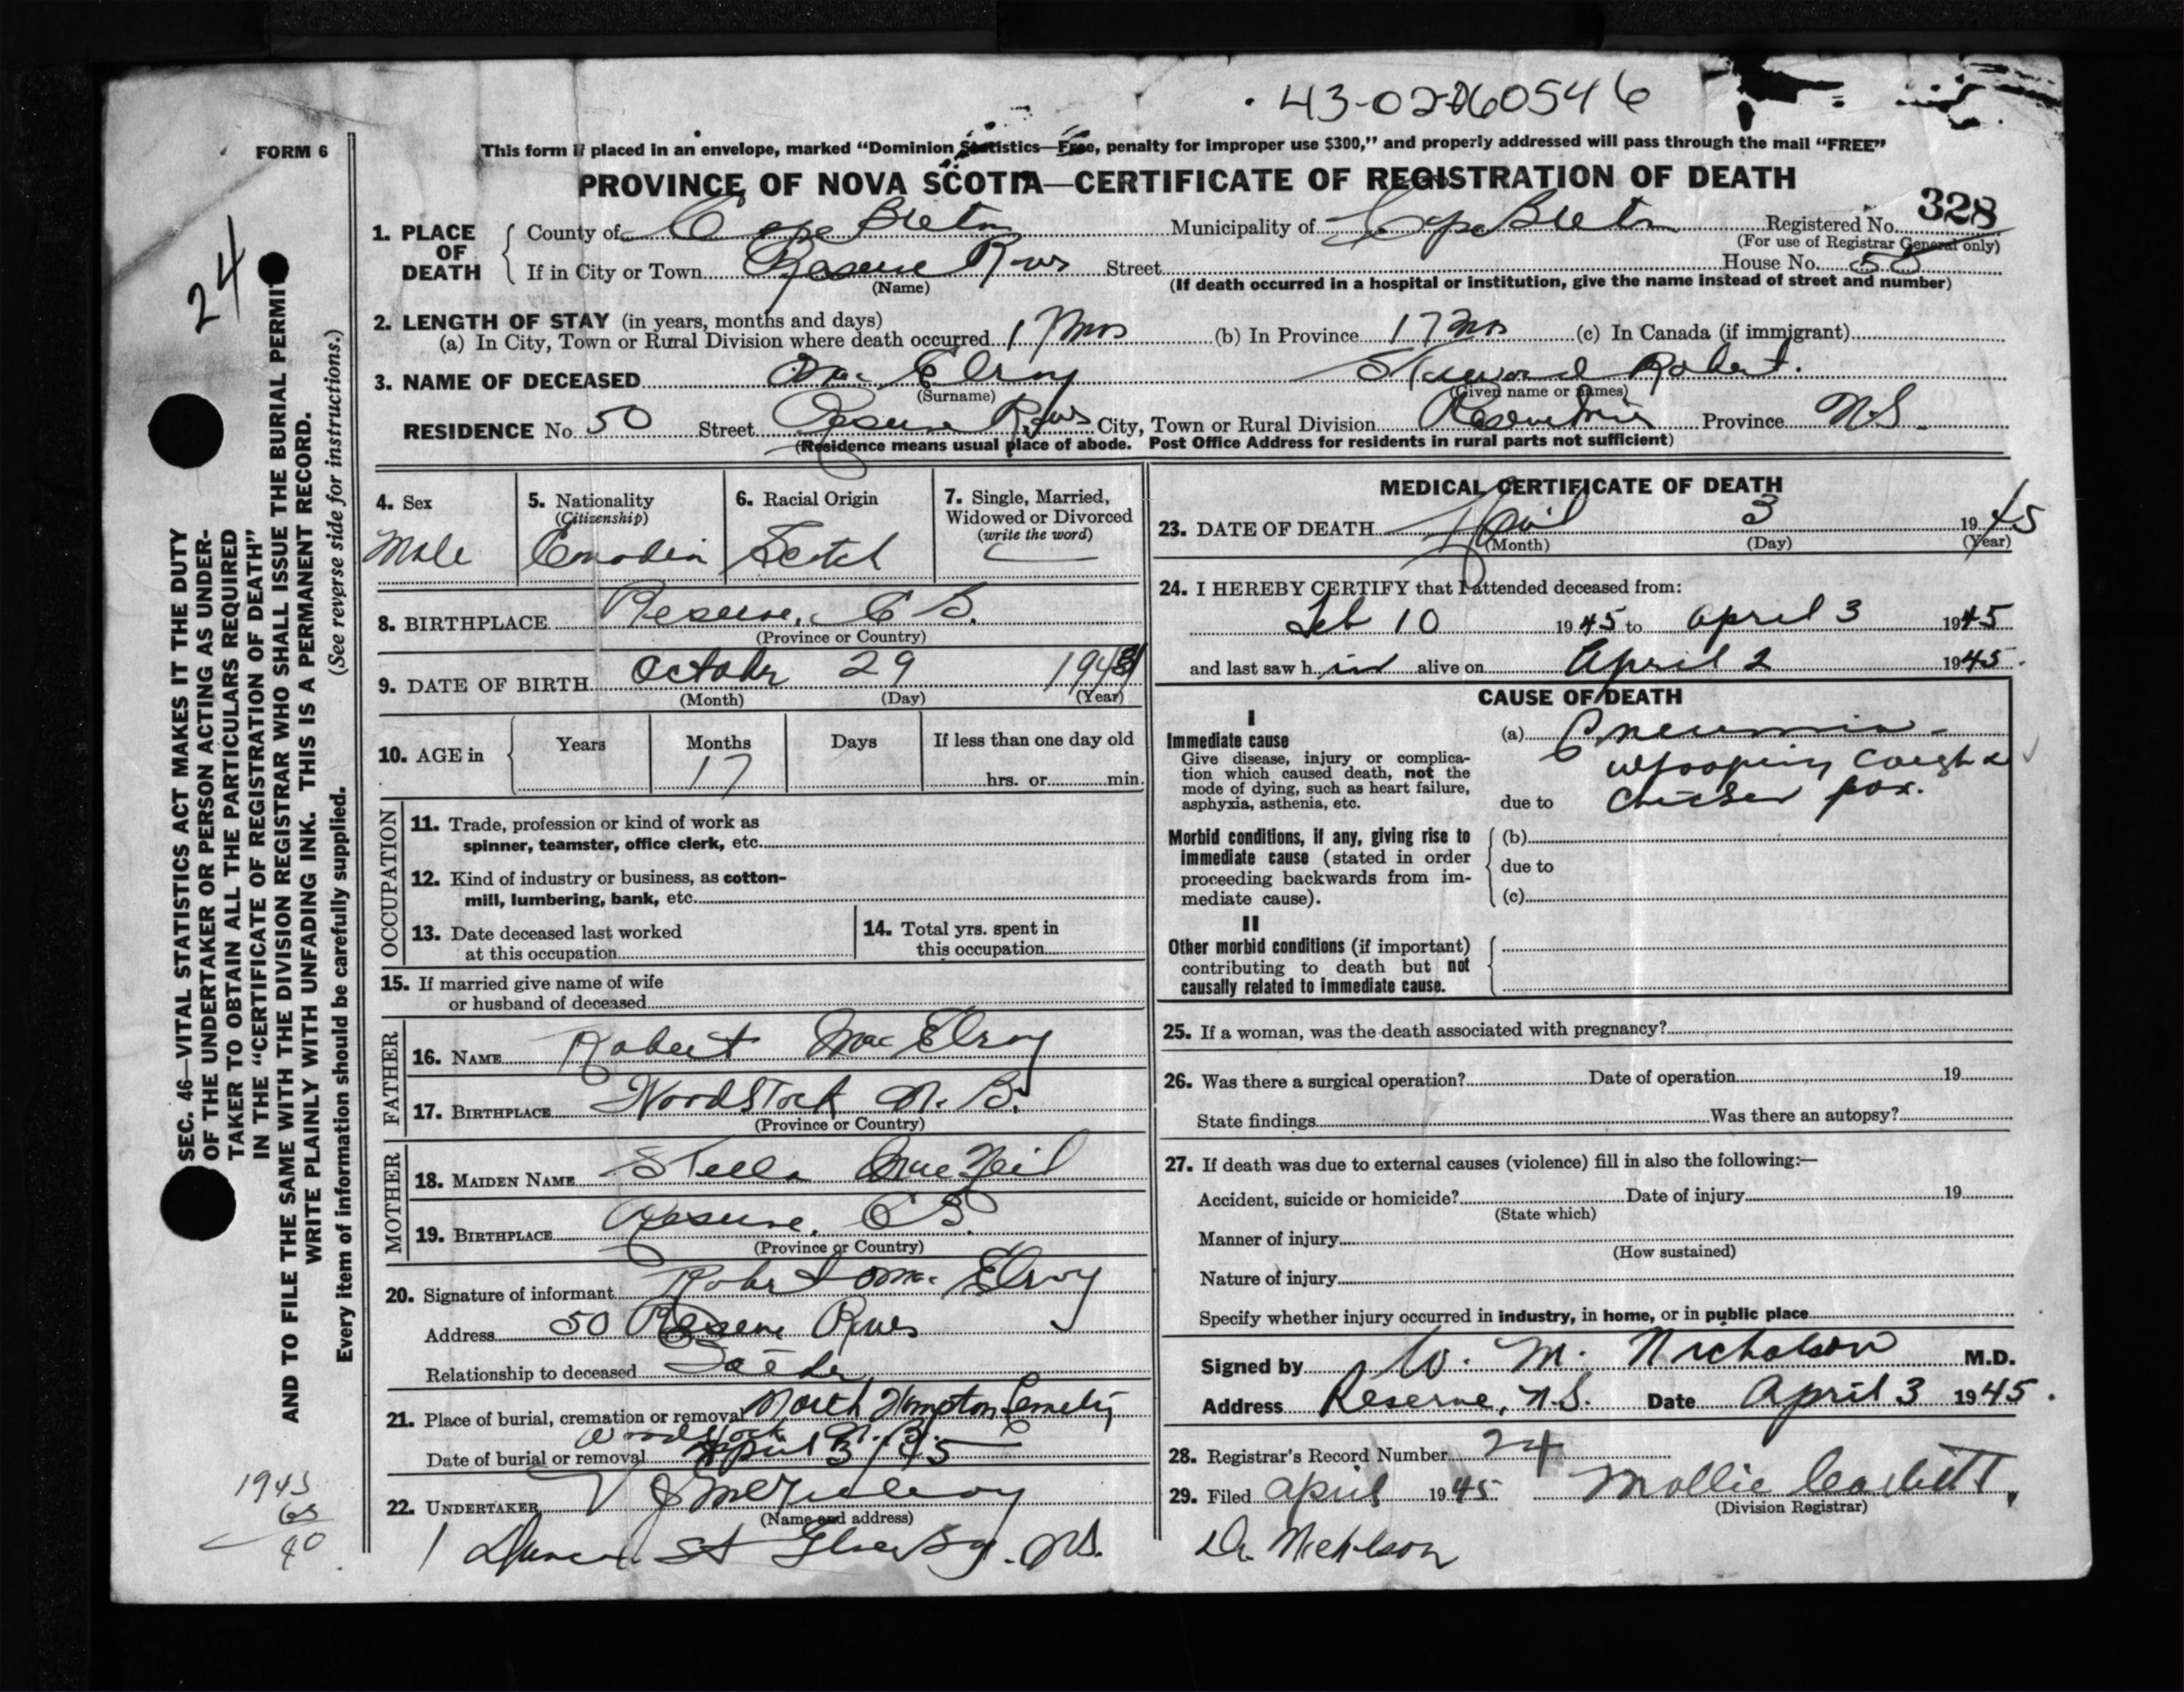 43-02-060546
FORM 6
This form if placed in an envelope, marked "Dominion Statistics—Free, penalty for improper use $300," and properly addressed will pass through the mail "FREE"
PROVINCE OF NOVA SCOTIA—CERTIFICATE OF REGISTRATION OF DEATH
328
1. PLACE OF DEATH
County of Cape Breton Municipality of Cape Breton Registered No.
(For use of Registrar General only)
If in City or Town Reserve Rows Street House No. 50
(Name) (If death occurred in a hospital or institution, give the name instead of street and number)
2. LENGTH OF STAY (in years, months and days)
(a) In City, Town or Rural Division where death occurred 17 mos (b) In Province 17 mos (c) In Canada (if immigrant)
3. NAME OF DECEASED Mac Elroy Robert.
(Surname) (Given name or names)
RESIDENCE No. 50 Street Reserve Rows City, Town or Rural Division Reserve Mines Province N.S.
(Residence means usual place of abode. Post Office Address for residents in rural parts not sufficient)
4. Sex
Male
5. Nationality
(Citizenship)
6. Racial Origin
Scotch
7. Single, Married,
Widowed or Divorced
(write the word)
8. BIRTHPLACE Reserve, C B.
(Province or Country)
9. DATE OF BIRTH October 29 1943
(Month) (Day) (Year)
10. AGE in
Years Months Days If less than one day old
17
hrs. or min.
OCCUPATION
11. Trade, profession or kind of work as
spinner, teamster, office clerk, etc.
12. Kind of industry or business, as cotton-
mill, lumbering, bank, etc.
13. Date deceased last worked
at this occupation
14. Total yrs. spent in
this occupation
15. If married give name of wife
or husband of deceased
FATHER
16. NAME Robert Mac Elroy
17. BIRTHPLACE Woodstock N. B.
(Province or Country)
MOTHER
18. MAIDEN NAME Stella MacNeil
19. BIRTHPLACE Reserve, C B.
(Province or Country)
20. Signature of informant Robert Mac Elroy
Address 50 Reserve Rows
Relationship to deceased Father
21. Place of burial, cremation or removal North Hampton Cemetery
Woodstock N. B.
Date of burial or removal April 3/45
22. UNDERTAKER V J
(Name and address)
St Glace Bay. N.S.
MEDICAL CERTIFICATE OF DEATH
23. DATE OF DEATH April 3 1945
(Month) (Day) (Year)
24. I HEREBY CERTIFY that I attended deceased from:
Feb 10 1945 to April 3 1945
and last saw him alive on April 2 1945.
CAUSE OF DEATH
I
Immediate cause
Give disease, injury or complica-
tion which caused death, not the
mode of dying, such as heart failure,
asphyxia, asthenia, etc.
(a) Pneumonia -
whooping cough &
due to chicken pox.
Morbid conditions, if any, giving rise to
immediate cause (stated in order
proceeding backwards from im-
mediate cause).
(b)
due to
(c)
II
Other morbid conditions (if important)
contributing to death but not
causally related to immediate cause.
25. If a woman, was the death associated with pregnancy?
26. Was there a surgical operation? Date of operation 19
State findings Was there an autopsy?
27. If death was due to external causes (violence) fill in also the following:—
Accident, suicide or homicide? Date of injury 19
(State which)
Manner of injury
(How sustained)
Nature of injury
Specify whether injury occurred in industry, in home, or in public place
Signed by W. M. Nicholson M.D.
Address Reserve, N.S. Date April 3 1945.
28. Registrar's Record Number 24
29. Filed April 1945 Mollie
(Division Registrar)
Dr. Nicholson
24
SEC. 46—VITAL STATISTICS ACT MAKES IT THE DUTY
OF THE UNDERTAKER OR PERSON ACTING AS UNDER-
TAKER TO OBTAIN ALL THE PARTICULARS REQUIRED
IN THE "CERTIFICATE OF REGISTRATION OF DEATH"
AND TO FILE THE SAME WITH THE DIVISION REGISTRAR WHO SHALL ISSUE THE BURIAL PERMIT
WRITE PLAINLY WITH UNFADING INK. THIS IS A PERMANENT RECORD.
Every item of information should be carefully supplied. (See reverse side for instructions.)